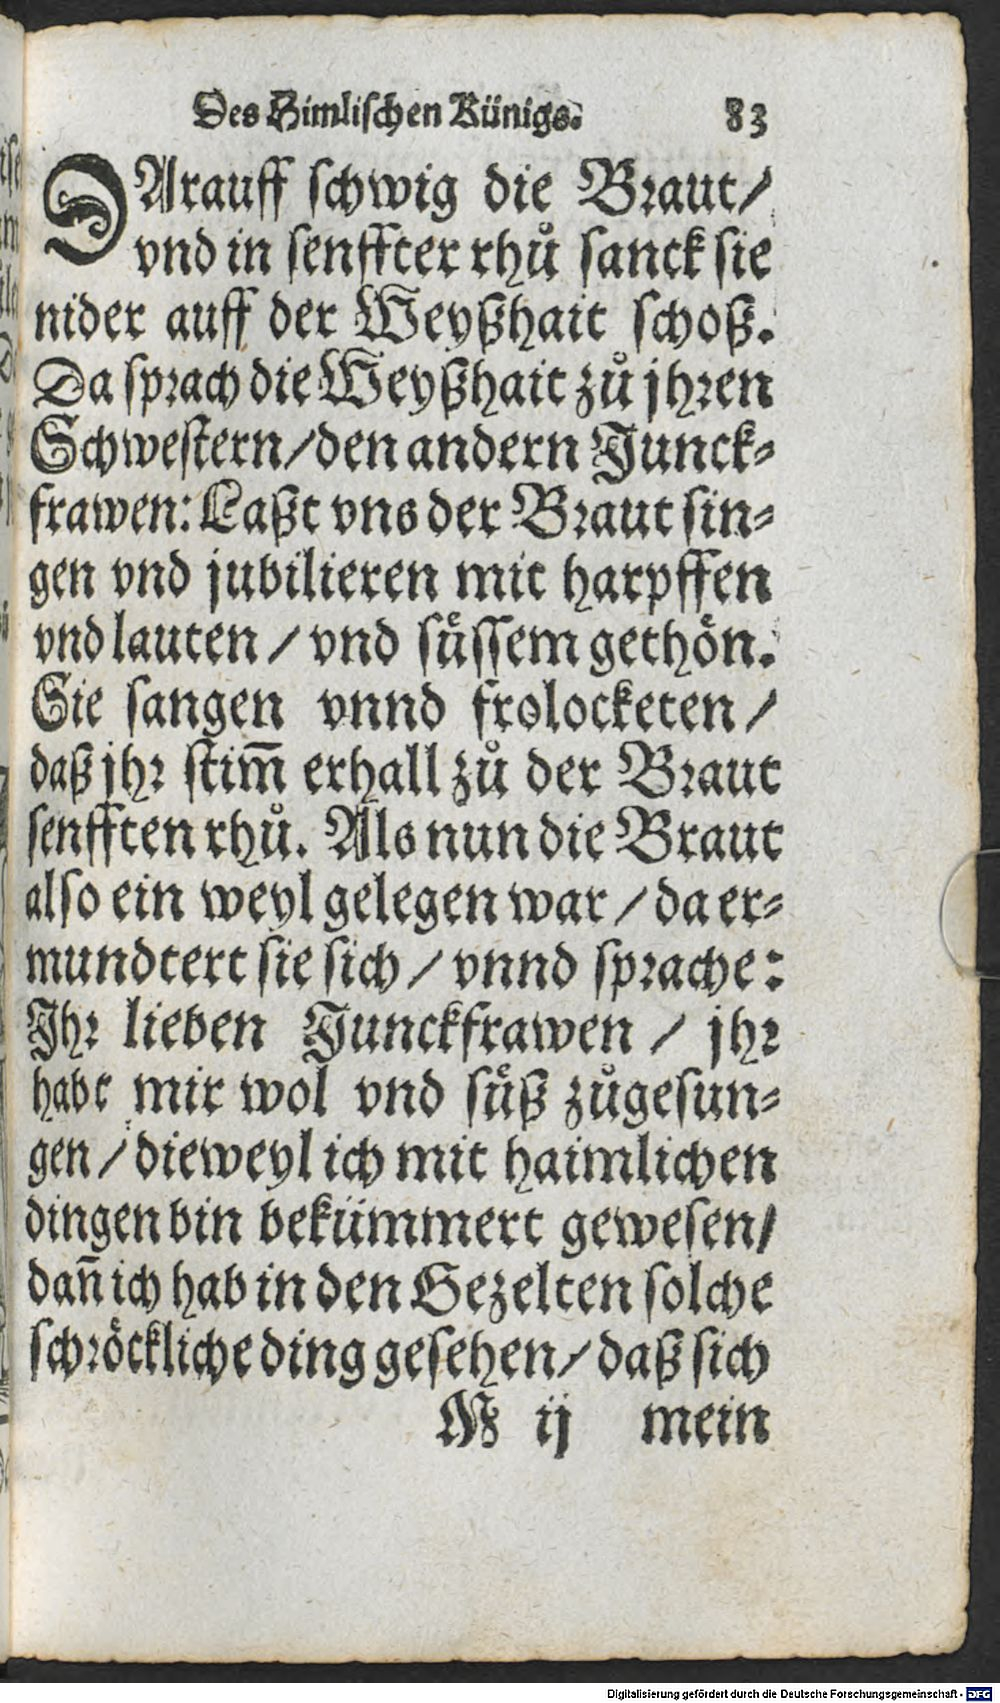 Des Himlischen Künigs. 83
DArauff schwig die Braut/
vnd in senffter rhů sanck sie
nider auff der Weyßhait schoß.
Da sprach die Weyßhait zů jhren
Schwestern/den andern Junck-
frawen: Laßt vns der Braut sin-
gen vnd jubilieren mit harpffen
vnd lauten / vnd sůssem gethön.
Sie sangen vnnd frolocketen /
daß jhr stim̅ erhall zů der Braut
senfften rhů. Als nun die Braut
also ein weyl gelegen war / da er-
mundtert sie sich / vnnd sprache:
Ihr lieben Junckfrawen / jhr
habt mir wol vnd sůß zůgesun-
gen / dieweyl ich mit haimlichen
dingen bin bekümmert gewesen/
dan̅ ich hab in den Gezelten solche
schröckliche ding gesehen/ daß sich
M ij mein
Digitalisierung gefördert durch die Deutsche Forschungsgemeinschaft - DFG